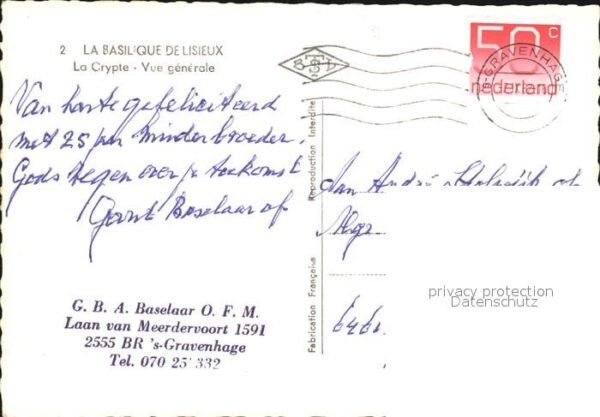 2 LA BASILIQUE DE LISIEUX
La Crypte - Vue générale
50 c
nederland
's-GRAVENHAGE
Van harte gefeliciteerd
met 25 jaar minderbroeder.
Gods zegen over je toekomst
Gerrit Baselaar ofm
Aan André
Alge
6461
G. B. A. Baselaar O. F. M.
Laan van Meerdervoort 1591
2555 BR 's-Gravenhage
Tel. 070 25 332
Fabrication Française
Reproduction Interdite
privacy protection
Datenschutz